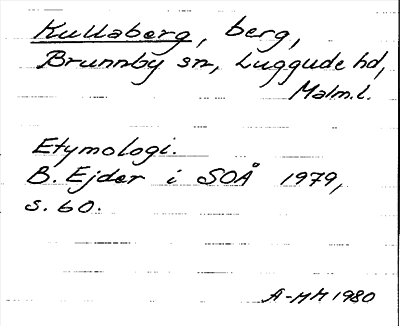 Kullaberg, berg,
Brunnby sn, Luggude hd,
Malm.l.
Etymologi.
B. Ejder i SOÅ 1979,
s. 60.
A-MM 1980